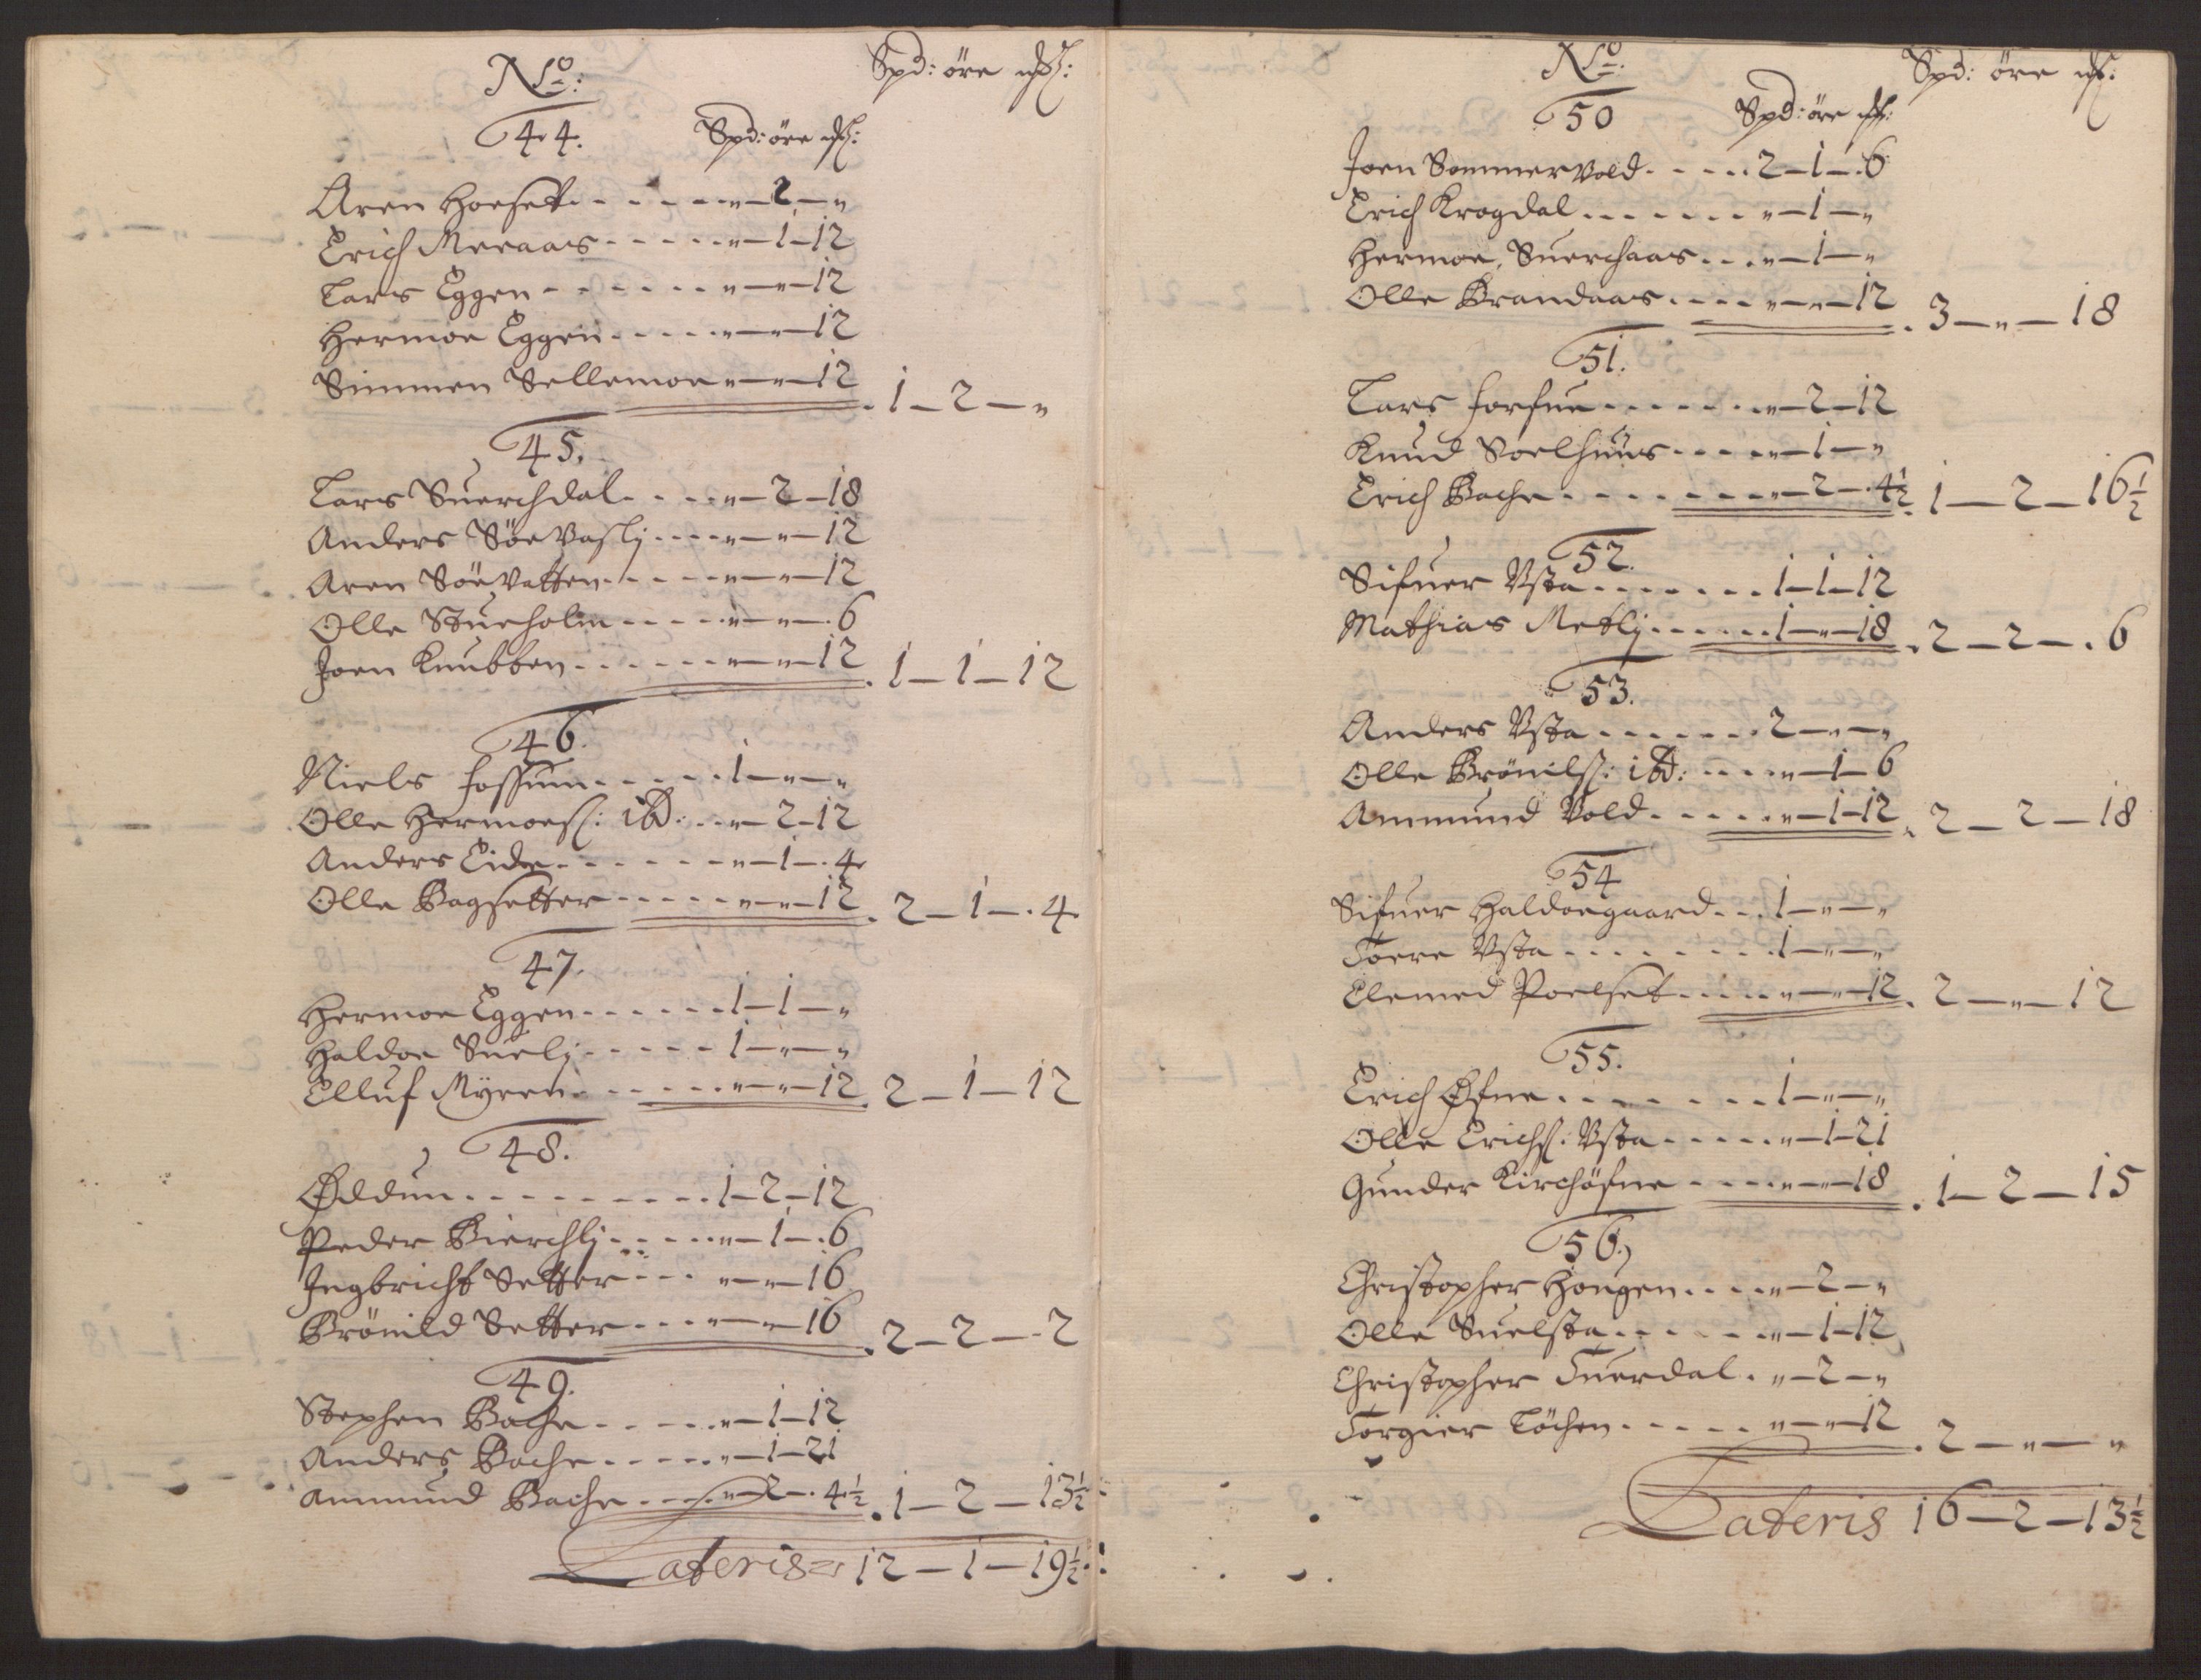 No:
Spd: öre
44.
Spd: öre
Aren Hoeset . . . . . . „ — 2 — „
Erich Meraas . . . . . „ — 1 — 12
Lars Eggen . . . . . . . „ — „ — 12
Hermoe Eggen . . . . . „ — „ — 12
Simmen Sellemoe „ — „ — 12 . 1 — 2 — „
45.
Lars Suerchdal . . . . „ — 2 — 18
Anders Söevaslj . . . . „ — „ — 12
Aren Söevatten . . . . . „ — „ — 12
Olle Stueholm . . . . . „ — „ — . 6
Joen Knubben . . . . . . „ — „ — 12 . 1 — 1 — 12
46.
Niels Fossum . . . . . . 1 — „ — „
Olle Hermoess: ibd: . . „ — 2 — 12
Anders Eide . . . . . . . „ — 1 — . 4
Olle Bagsetter . . . . . „ — „ — 12 . 2 — 1 — . 4
47.
Hermoe Eggen . . . . . . 1 — 1 — „
Haldoe Suelj . . . . . 1 — „ — „
Elluf Myren . . . . . . „ — „ — 12 . 2 — 1 — 12
48.
Øddun . . . . . . . . . 1 — 2 — 12
Peder Bierchlj . . . . . „ — 1 — . 6
Ingbricht Setter . . . „ — „ — 16
Brönild Setter . . . „ — „ — 16 . 2 — 2 — . 2
49.
Stephen Bache . . . . . „ — 1 — 12
Anders Bache . . . . . „ — 1 — 21
Ammund Bache . . . . „ — 2 — . 4½ . 1 — 2 — 13½
Lateris 12 — 1 — 19½
No:
Spd: öre
50
Spd: öre
Joen Sommervold . . . . . 2 — 1 — . 6
Erich Krogdal . . . . . . . „ — 1 — „
Hermoe Suerchaas . . . „ — 1 — „
Olle Brandaas . . . . . „ — „ — 12 . 3 — „ — 18
51.
Lars Forsue . . . . . . . „ — 2 — 12
Knud Soelhuus . . . . . „ — 1 — „
Erich Bache . . . . . . . . „ — 2 — . 4½ . 1 — 2 — 16½
52.
Sifuer Vsta . . . . . . . 1 — 1 — 12
Mathias Metlj . . . . . . 1 — „ — 18 . 2 — 2 — . 6
53.
Anders Vsta . . . . . . . 2 — „ — „
Olle Brönilss: ibd: . . . . „ — 1 — 6
Ammund Vold . . . . . . „ — 1 — 12 . 2 — 2 — 18
54
Sifuer Haldoegaard . . . 1 — „ — „
Toere Vsta . . . . . . . . 1 — „ — „
Clemed Poelset . . . . . „ — „ — 12 . 2 — „ — 12
55.
Erich Øfne . . . . . . . . 1 — „ — „
Olle Erichs: Vsta . . . . . „ — 1 — 21
Gunder Kirchöfne . . . . „ — „ — 18 . 1 — 2 — 15
56.
Christopher Hougen . . . . „ — 2 — „
Olle Suelsta . . . . . . „ — 1 — 12
Christopher Tuerdal . „ — 2 — „
Torgier Löchen . . . . . „ — „ — 12 . 2 — „ — „
Lateris 16 — 2 — 13½